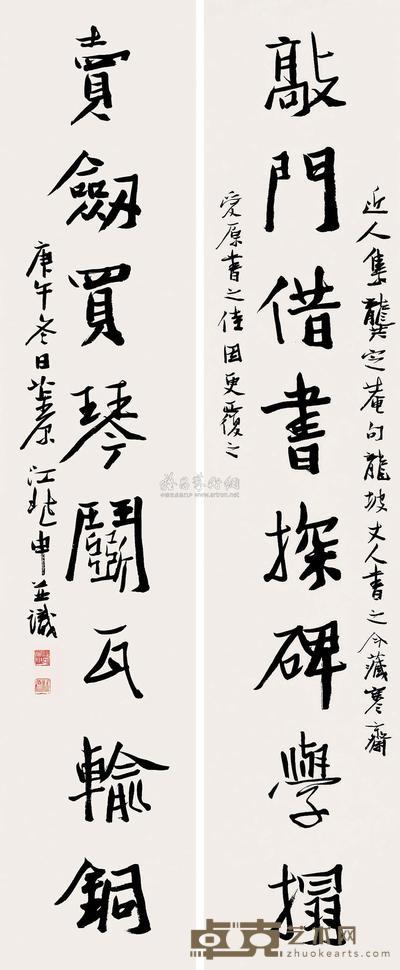 近人集龔定菴句龍坡丈人書之今藏寒齋
敲門借書探碑學搨
愛原書之佳因更覆之
賣劍買琴鬭瓦輸銅
庚午冬日椒原江兆申並識
卓克艺术网
www.zhuokearts.com